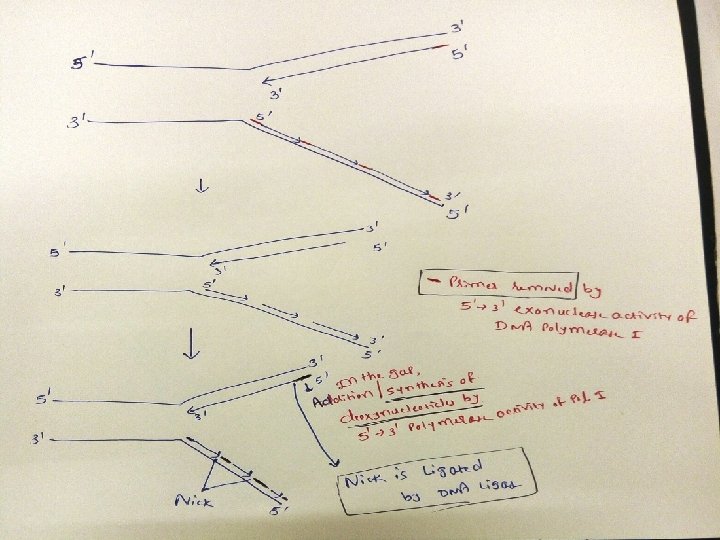 3'
5'
5'
3'
3'
5'
3'
5'
3'
5'
5'
3'
3'
5'
3'
5'
- Primer removed by
5'→3' exonuclease activity of
DNA Polymerase I
3'
5'
5'
3'
3'
In the gap,
Addition/synthesis of
deoxynucleotides by
5'→3' Polymerase activity of Pol I
Nick
5'
Nick is Ligated
by DNA Ligase